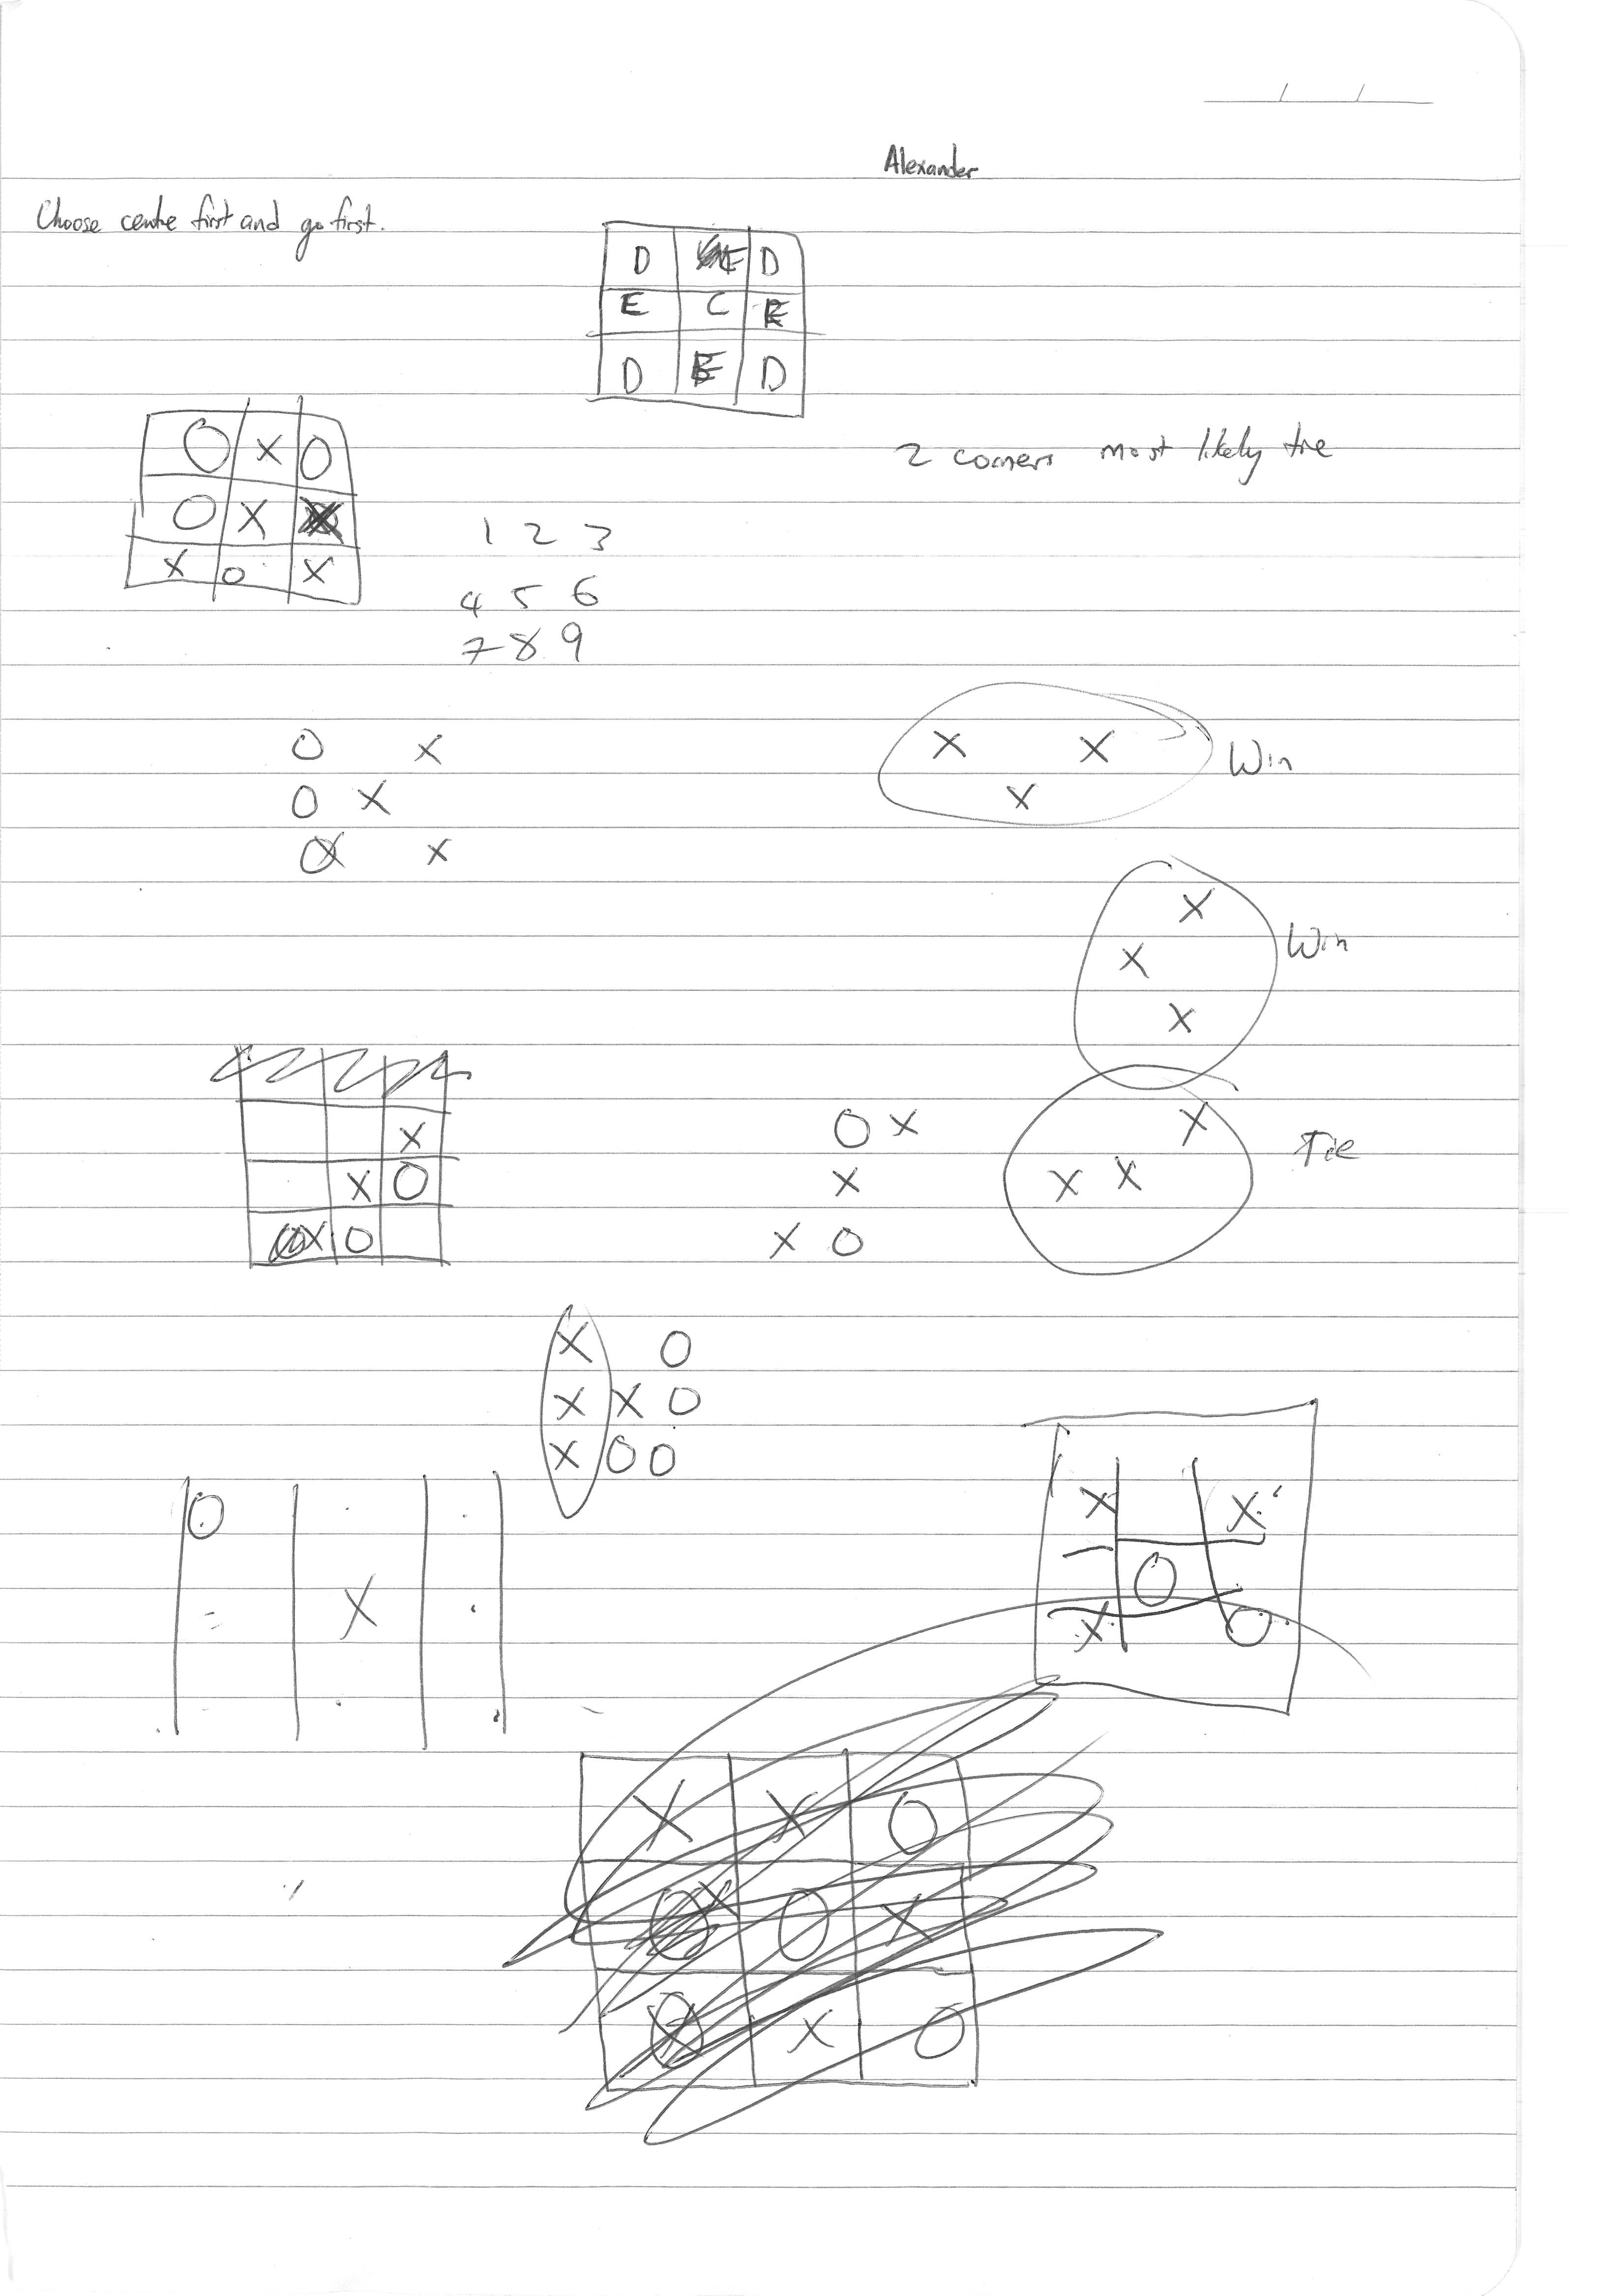 Alexander
Choose centre first and go first.
D E D
E C E
D E D
2 corners most likely tie
O X O
O X
X O X
1 2 3
4 5 6
7 8 9
O X
O X
X
X X
X
Win
X
X
X
Win
X
X O
X O
O X
X
X O
X
X X
Tie
X O
X X O
X O O
O
X
X X
O
X O
X X O
X O X
X O